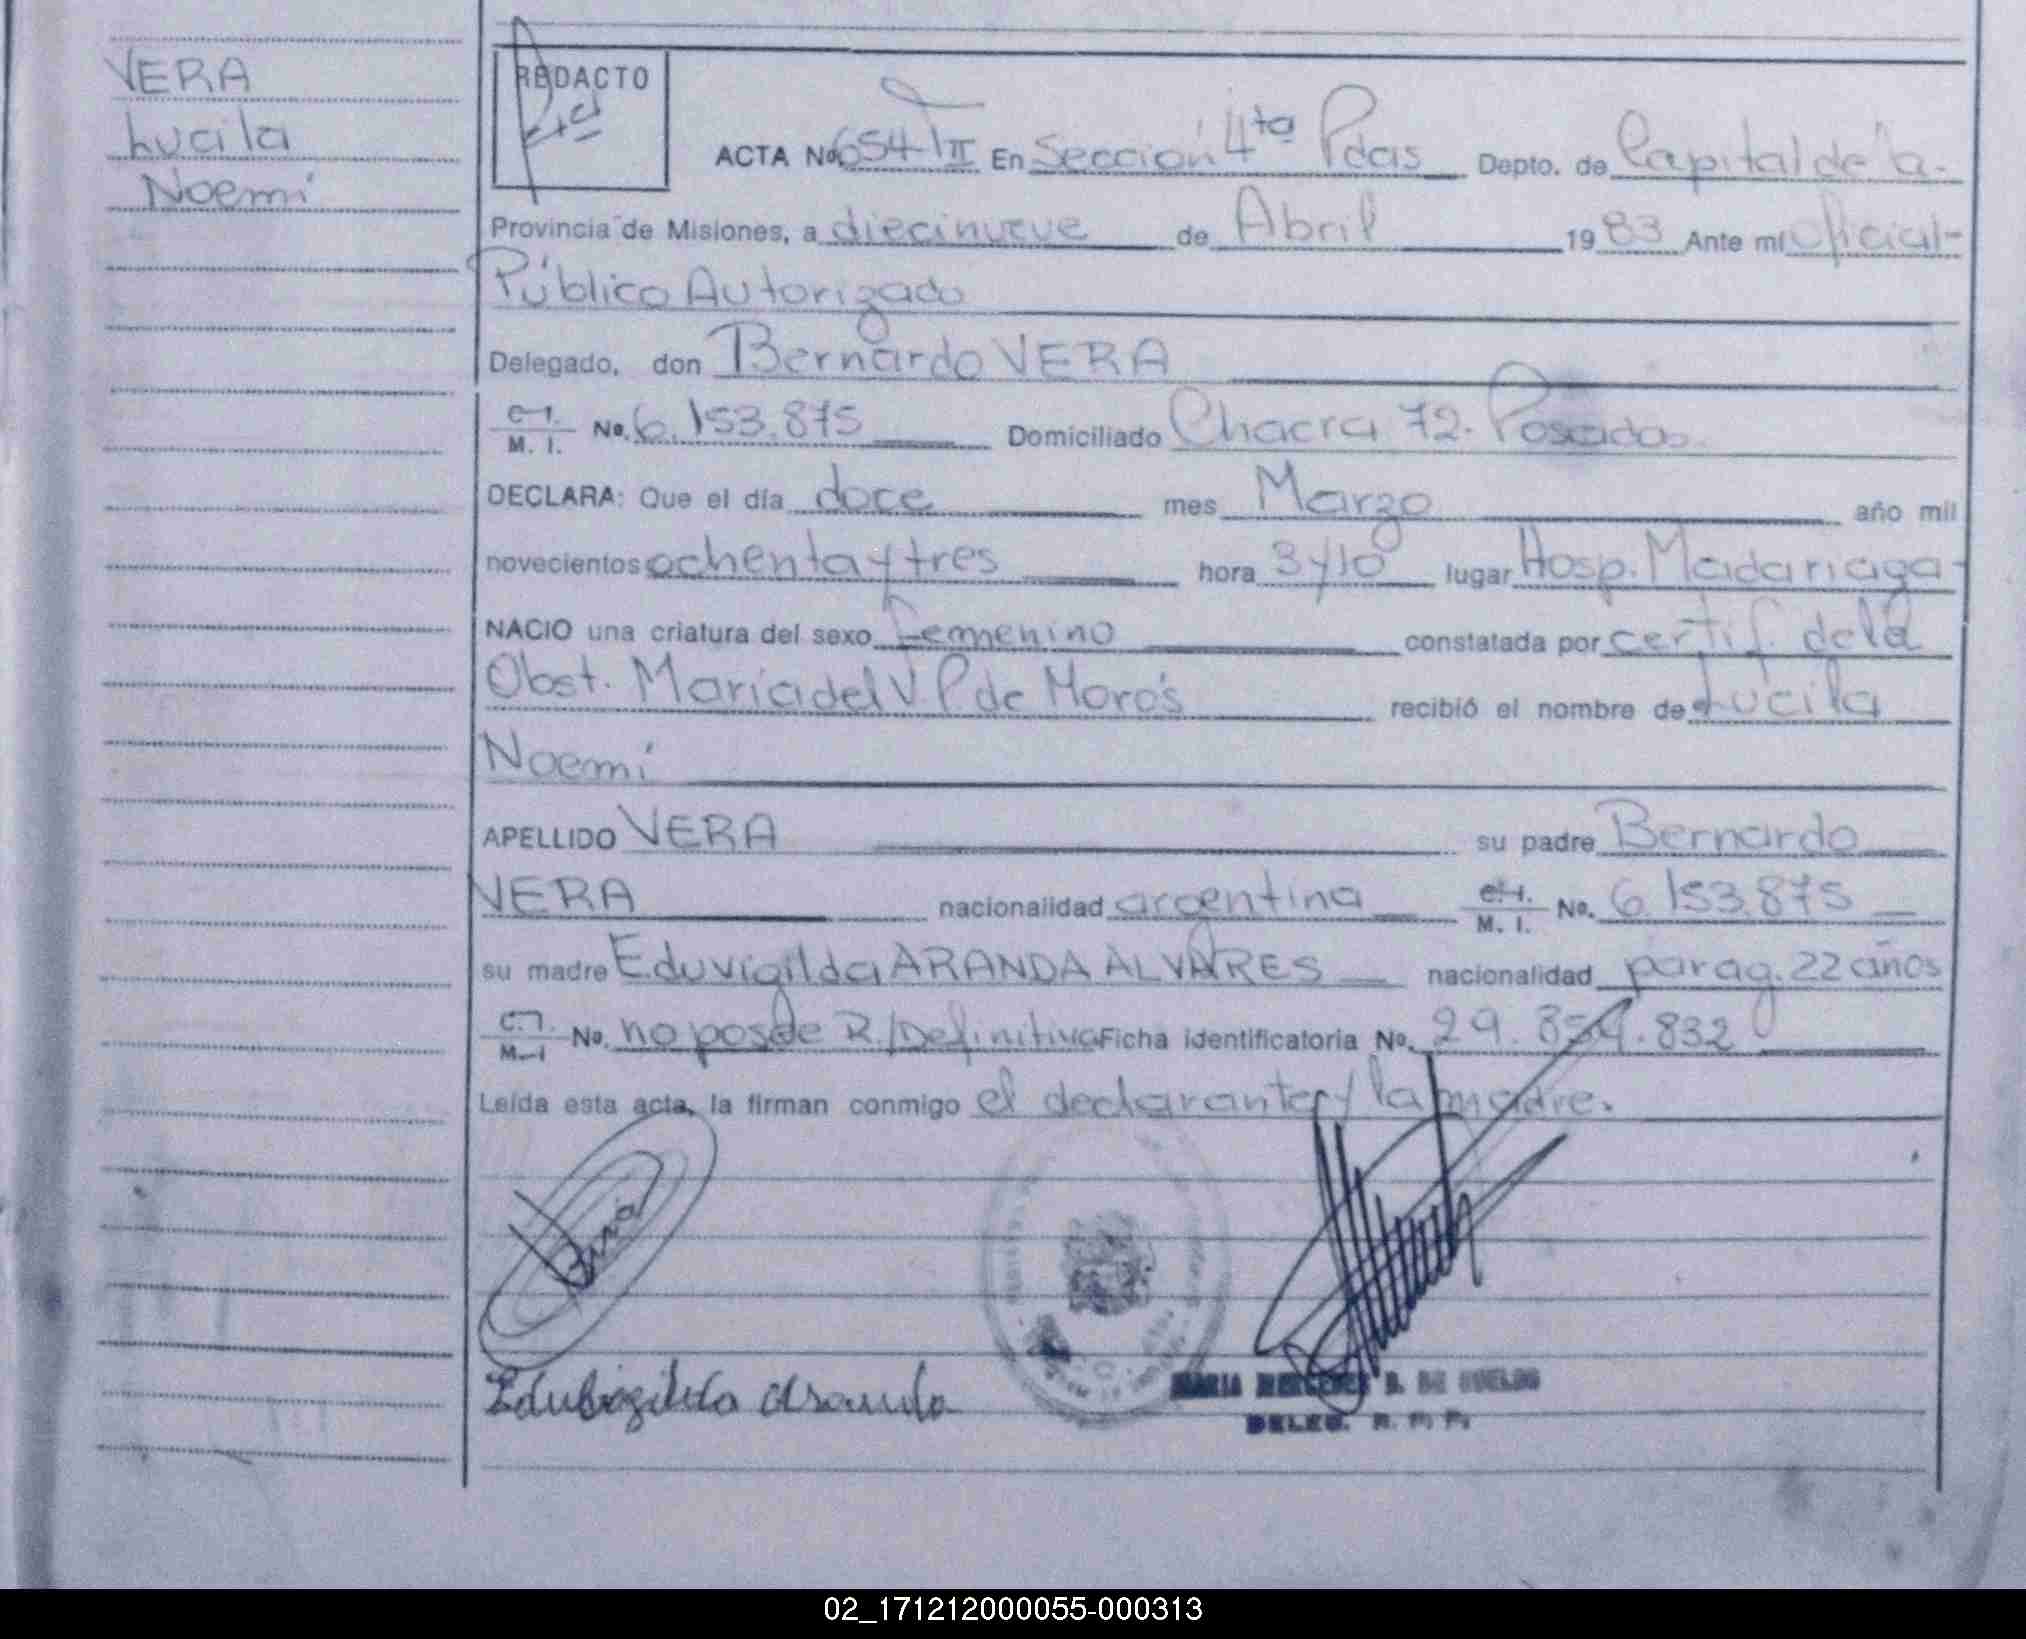 VERA
Lucila
Noemí
REDACTO
ACTA No 654 T II En Sección 4ta Pdas Depto. de Capital de la
Provincia de Misiones, a diecinueve de Abril 1983 Ante mí Oficial-
Público Autorizado
Delegado, don Bernardo VERA
M. I. No. 6.153.875 Domiciliado Chacra 72. Posadas.
DECLARA: Que el día doce mes Marzo año mil
novecientos ochenta y tres hora 3 y 10 lugar Hosp. Madariaga-
NACIO una criatura del sexo femenino constatada por certif. de la
Obst. María del V. P. de Moro's recibió el nombre de Lucila
Noemí
APELLIDO VERA su padre Bernardo
VERA nacionalidad argentina M. I. No. 6.153.875
su madre Eduvigilda ARANDA ALVARES nacionalidad parag. 22 años
C.I. M.I No. no posee R./Definitiva Ficha identificatoria No. 29.859.832
Leída esta acta, la firman conmigo el declarante y la madre.
Edubigilda Aranda
DELEG. R. P. P.
02_171212000055-000313